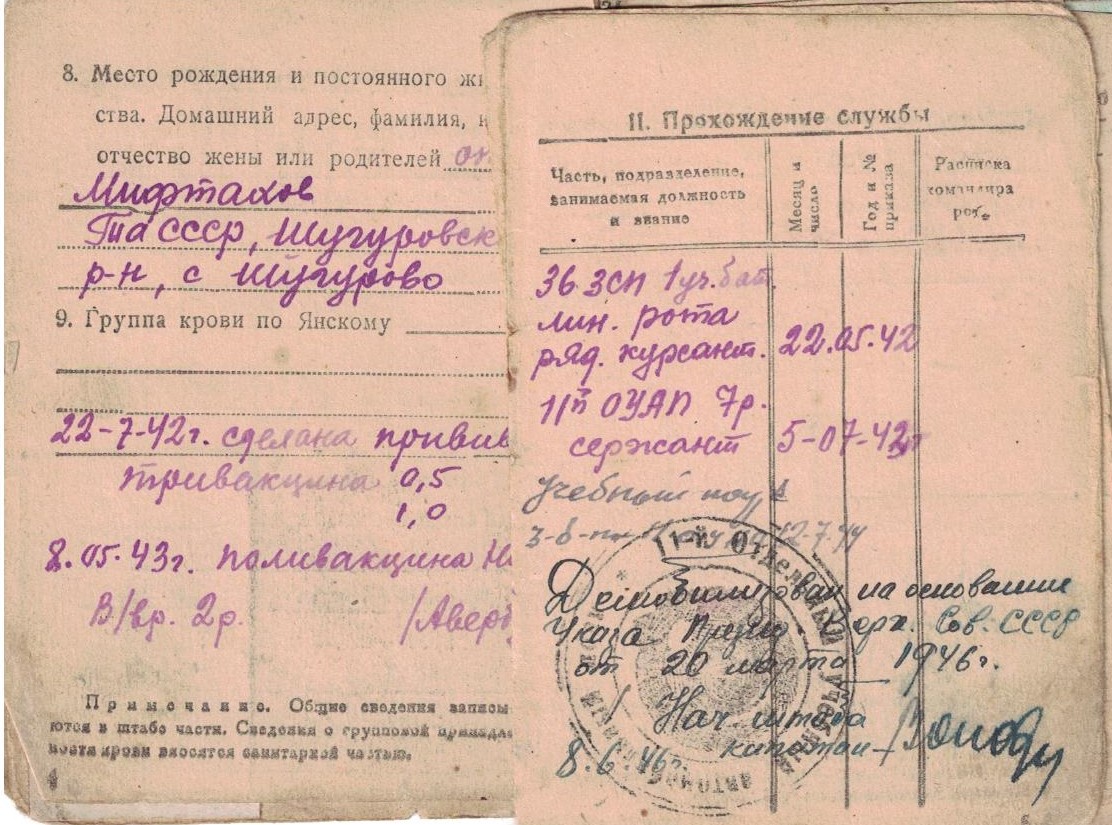 8. Место рождения и постоянного жи
ства. Домашний адрес, фамилия, и
отчество жены или родителей
Мифтахов
ТаССР, Шугуровск
р-н, с Шугурово
9. Группа крови по Янскому
22-7-42г. сделана привив
тривакцина 0,5
1,0
8.05.43г. поливакцина
В/вр. 2р. /Аверб
Примечание. Общие сведения записы
ются в штабе части. Сведения о групповой принадле
ности крови вносятся санитарной частью.
4
II. Прохождение службы
Часть, подразделение,
занимаемая должность
и звание
Месяц и
число
Год и №
приказа
Расписка
командира
роты
36 ЗСП 1 уч. бат.
лин. рота
ряд. курсант. 22.05.42
11й ОУАП 7р.
сержант 5-07-42г
Учебный
Демобилизован на основании
Указа През. Верх. Сов. СССР
от 20 марта 1946г.
/ Нач штаба
капитан
8.6.46г.
11-й Отдельный